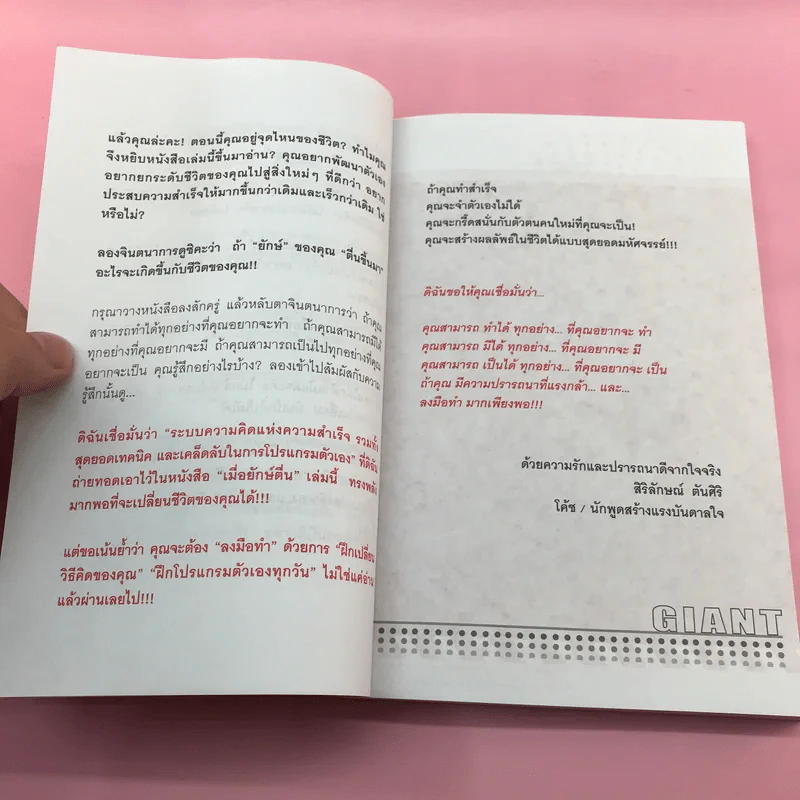 แล้วคุณล่ะคะ! ตอนนี้คุณอยู่จุดไหนของชีวิต? ทำไมคุณ
จึงหยิบหนังสือเล่มนี้ขึ้นมาอ่าน? คุณอยากพัฒนาตัวเอง
อยากยกระดับชีวิตของคุณไปสู่สิ่งใหม่ๆ ที่ดีกว่า อยาก
ประสบความสำเร็จให้มากขึ้นกว่าเดิมและเร็วกว่าเดิม ใช่
หรือไม่?
ลองจินตนาการดูซิคะว่า ถ้า “ยักษ์” ของคุณ “ตื่นขึ้นมา”
อะไรจะเกิดขึ้นกับชีวิตของคุณ!!
กรุณาวางหนังสือลงสักครู่ แล้วหลับตาจินตนาการว่า ถ้าคุณ
สามารถทำได้ทุกอย่างที่คุณอยากจะทำ ถ้าคุณสามารถมีได้
ทุกอย่างที่คุณอยากจะมี ถ้าคุณสามารถเป็นไปทุกอย่างที่คุณ
อยากจะเป็น คุณรู้สึกอย่างไรบ้าง? ลองเข้าไปสัมผัสกับความ
รู้สึกนั้นดู...
ดิฉันเชื่อมั่นว่า “ระบบความคิดแห่งความสำเร็จ รวมทั้ง
สุดยอดเทคนิค และเคล็ดลับในการโปรแกรมตัวเอง” ที่ดิฉัน
ถ่ายทอดเอาไว้ในหนังสือ “เมื่อยักษ์ตื่น” เล่มนี้ ทรงพลัง
มากพอที่จะเปลี่ยนชีวิตของคุณได้!!!
แต่ขอเน้นย้ำว่า คุณจะต้อง “ลงมือทำ” ด้วยการ “ฝึกเปลี่ยน
วิธีคิดของคุณ” “ฝึกโปรแกรมตัวเองทุกวัน” ไม่ใช่แค่อ่าน
แล้วผ่านเลยไป!!!
ถ้าคุณทำสำเร็จ
คุณจะจำตัวเองไม่ได้
คุณจะกรี๊ดสนั่นกับตัวตนคนใหม่ที่คุณจะเป็น!
คุณจะสร้างผลลัพธ์ในชีวิตได้แบบสุดยอดมหัศจรรย์!!!
ดิฉันขอให้คุณเชื่อมั่นว่า...
คุณสามารถ ทำได้ ทุกอย่าง... ที่คุณอยากจะ ทำ
คุณสามารถ มีได้ ทุกอย่าง... ที่คุณอยากจะ มี
คุณสามารถ เป็นได้ ทุกอย่าง... ที่คุณอยากจะ เป็น
ถ้าคุณ มีความปรารถนาที่แรงกล้า... และ...
ลงมือทำ มากเพียงพอ!!!
ด้วยความรักและปรารถนาดีจากใจจริง
สิริลักษณ์ ตันศิริ
โค้ช / นักพูดสร้างแรงบันดาลใจ
GIANT